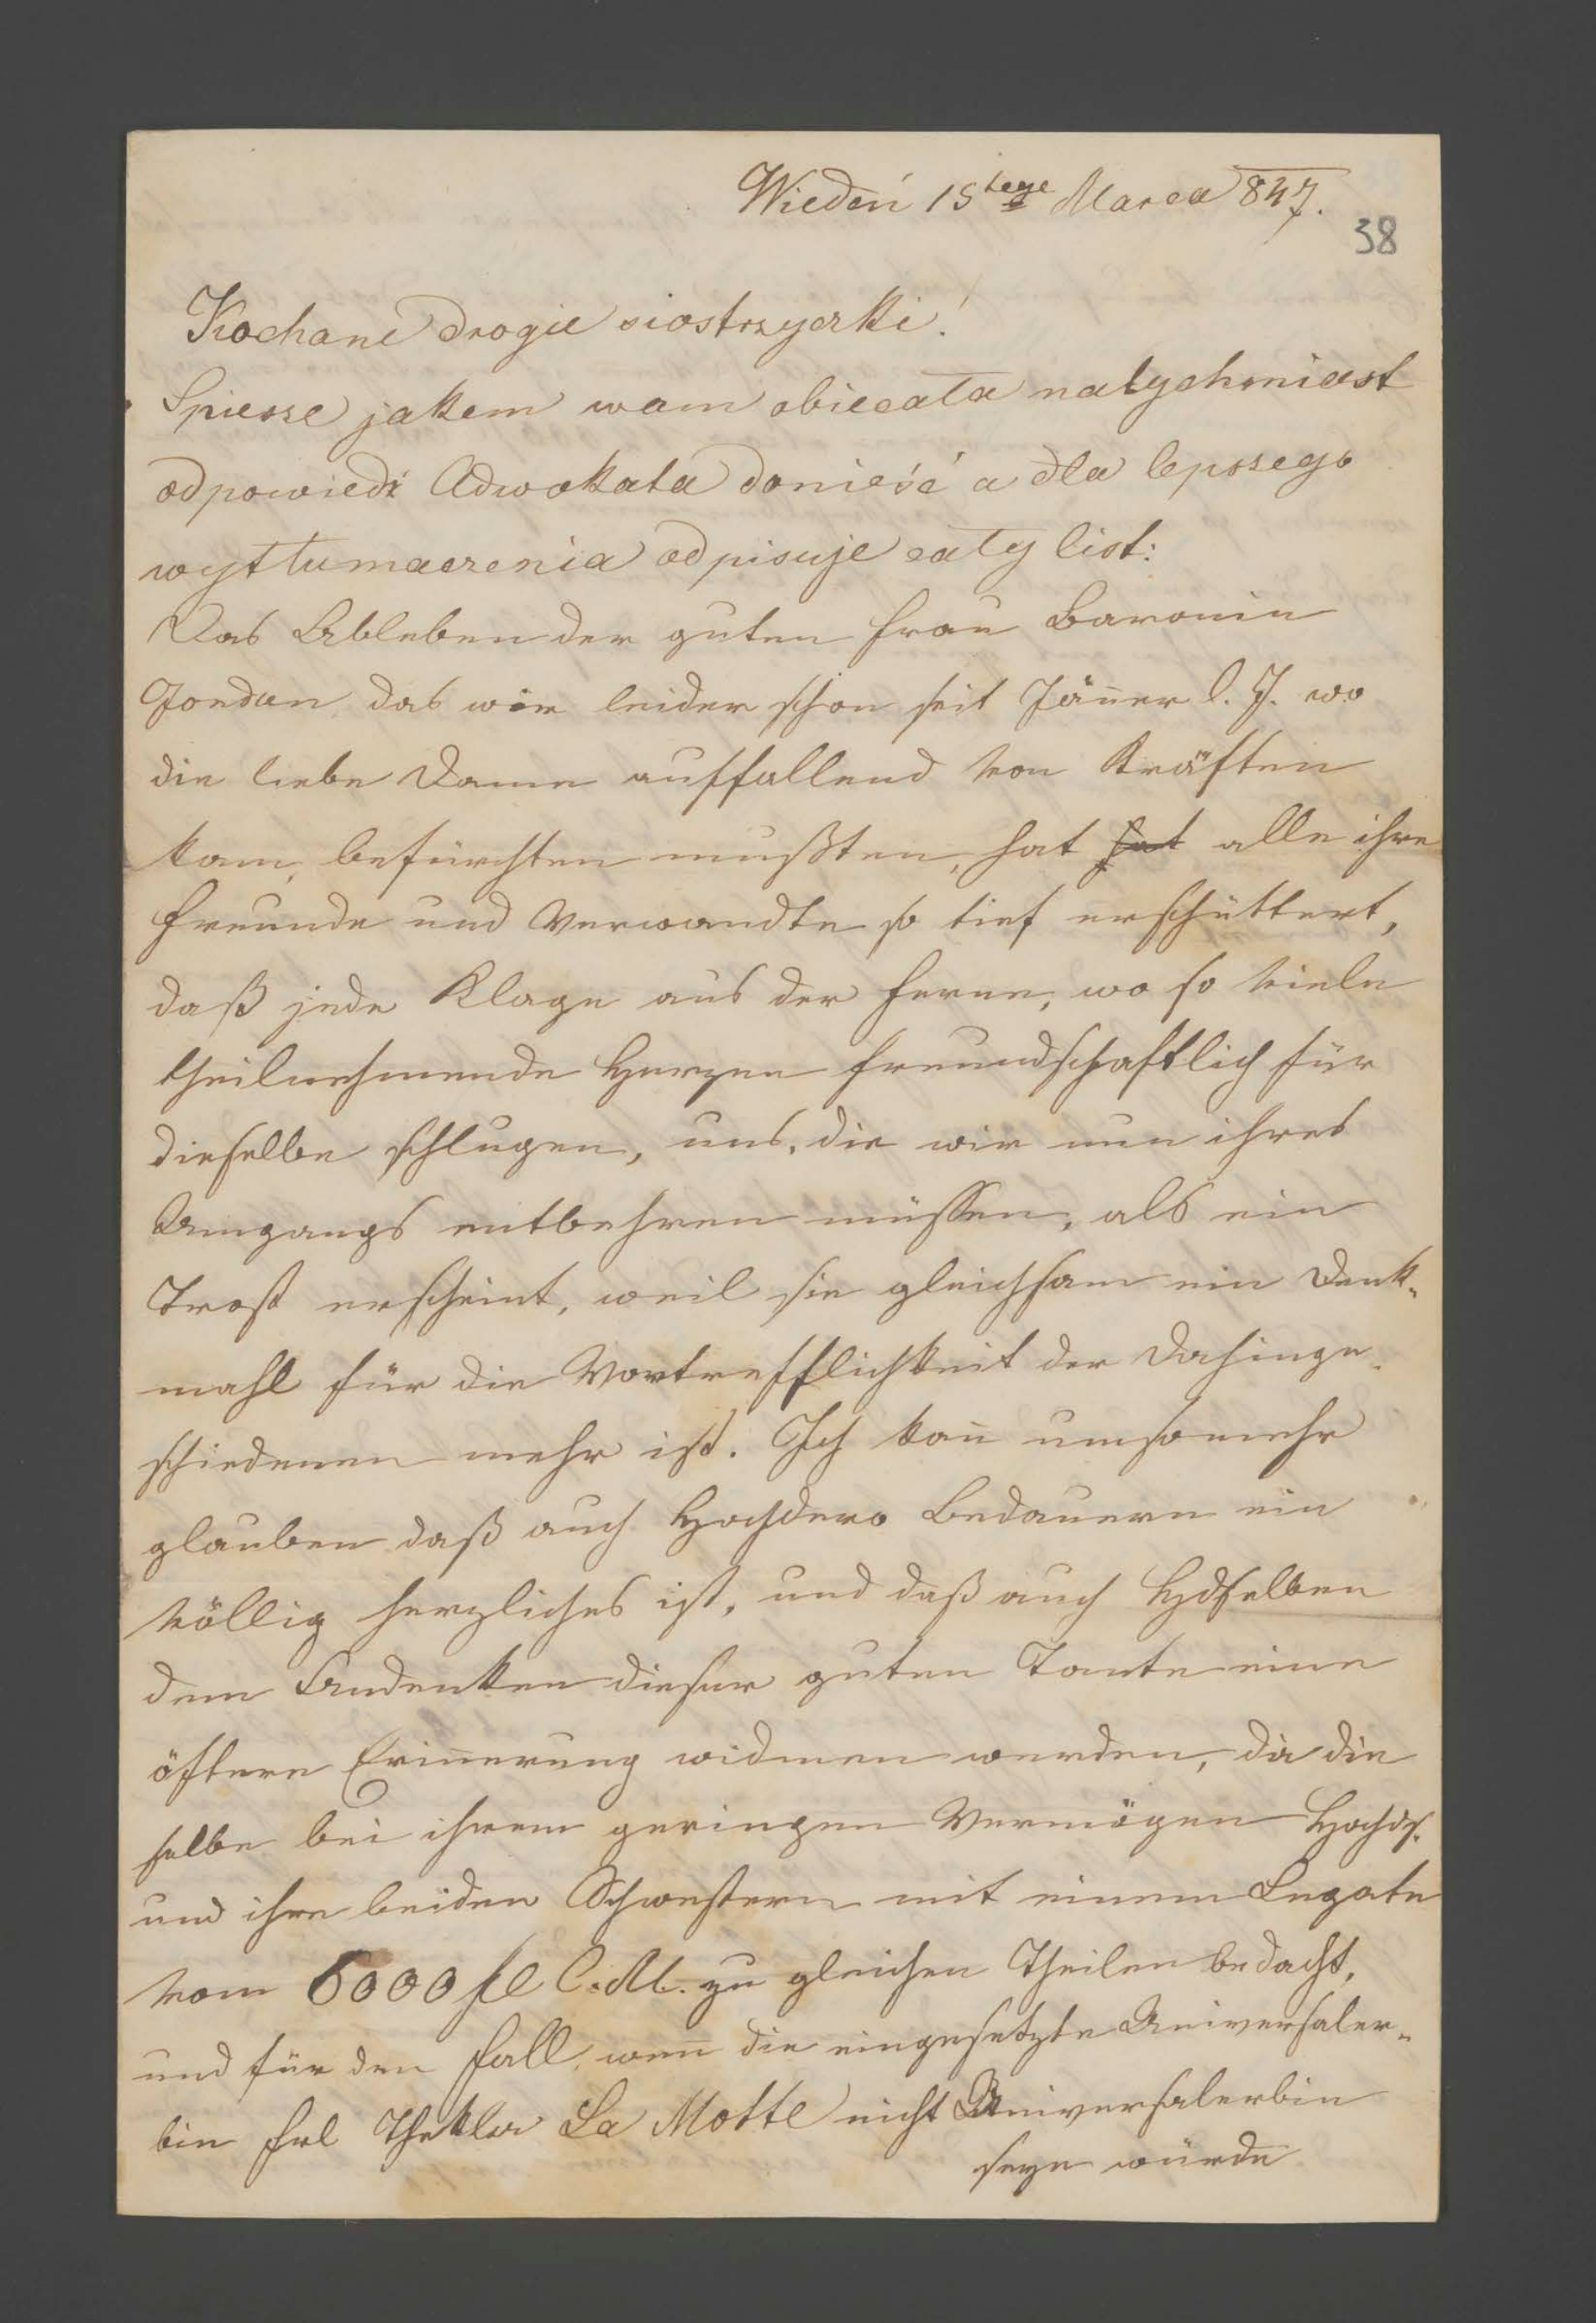 Wiedeń 15tego Marca 847.
38
Kochane drogie siostrzyczki!
Spiesze jakem wam obiecała natychmiast
odpowiedź Adwokata donieść a dla lepszego
wytłumaczenia odpisuje cały list:
Das Ableben der guten Frau Baronin
Jordan das wir leider schon seit Jän̄er l. J. wo
die liebe Dame auffallend von Kräften
kam, befürchten mußten, hat hat alle ihre
Freunde und Verwandte so tief erschüttert,
daß jede Klage aus der Ferne, wo so viele
theilnehmende Herzen freundschaftlich für
dieselbe schlugen, uns, die wir nun ihres
Umgangs entbehren müssen, als ein
Trost erscheint, weil sie gleichsam ein Denk-
mahl für die Vortrefflichkeit der Dahinge-
schiedenen mehr ist. Ich kan̄ umsomehr
glauben daß auch Hochdero Bedauern ein
völlig herzliches ist, und daß auch Hdselben
dem Andenken dieser guten Tante eine
öftere Erin̄erung widmen werden, da die
selbe bei ihrem geringen Vermögen Hochds.
und ihre beiden Schwestern mit einem Legate
vom 6000 fl C.M. zu gleichen Theilen bedacht,
und für den Fall, wen̄ die eingesetzte Universaler-
bin Frl Thekla La Motte nicht Universalerbin
seyn würde